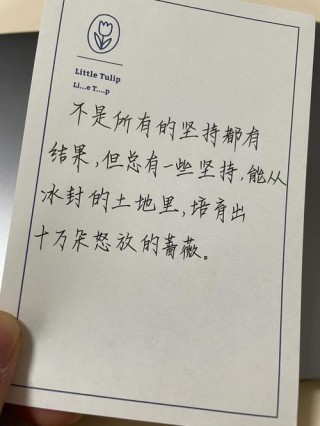 Little Tulip
Li...e T....p
不是所有的坚持都有
结果,但总有一些坚持,能从
冰封的土地里,培育出
十万朵怒放的蔷薇。